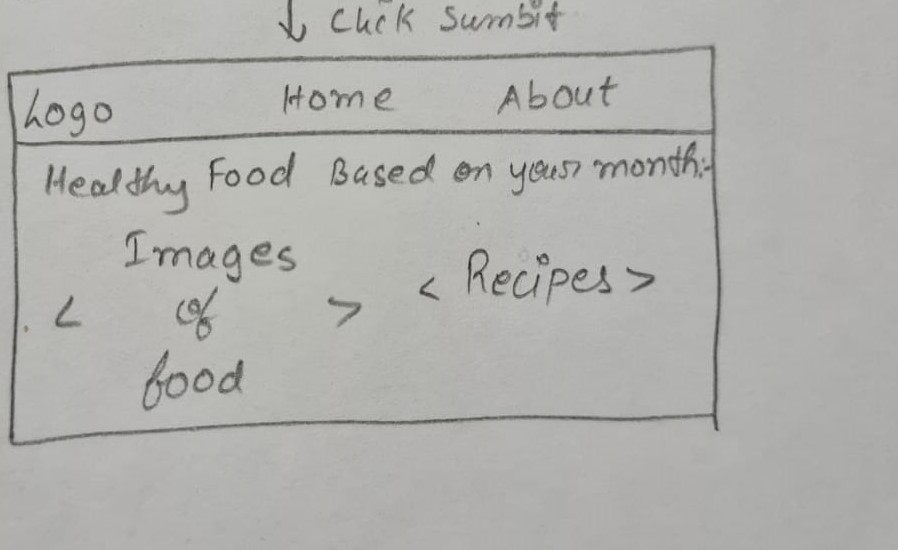 ↓ Click Sumbit
Logo Home About
Healthy Food Based on your month:-
Images
< of > < Recipes >
food